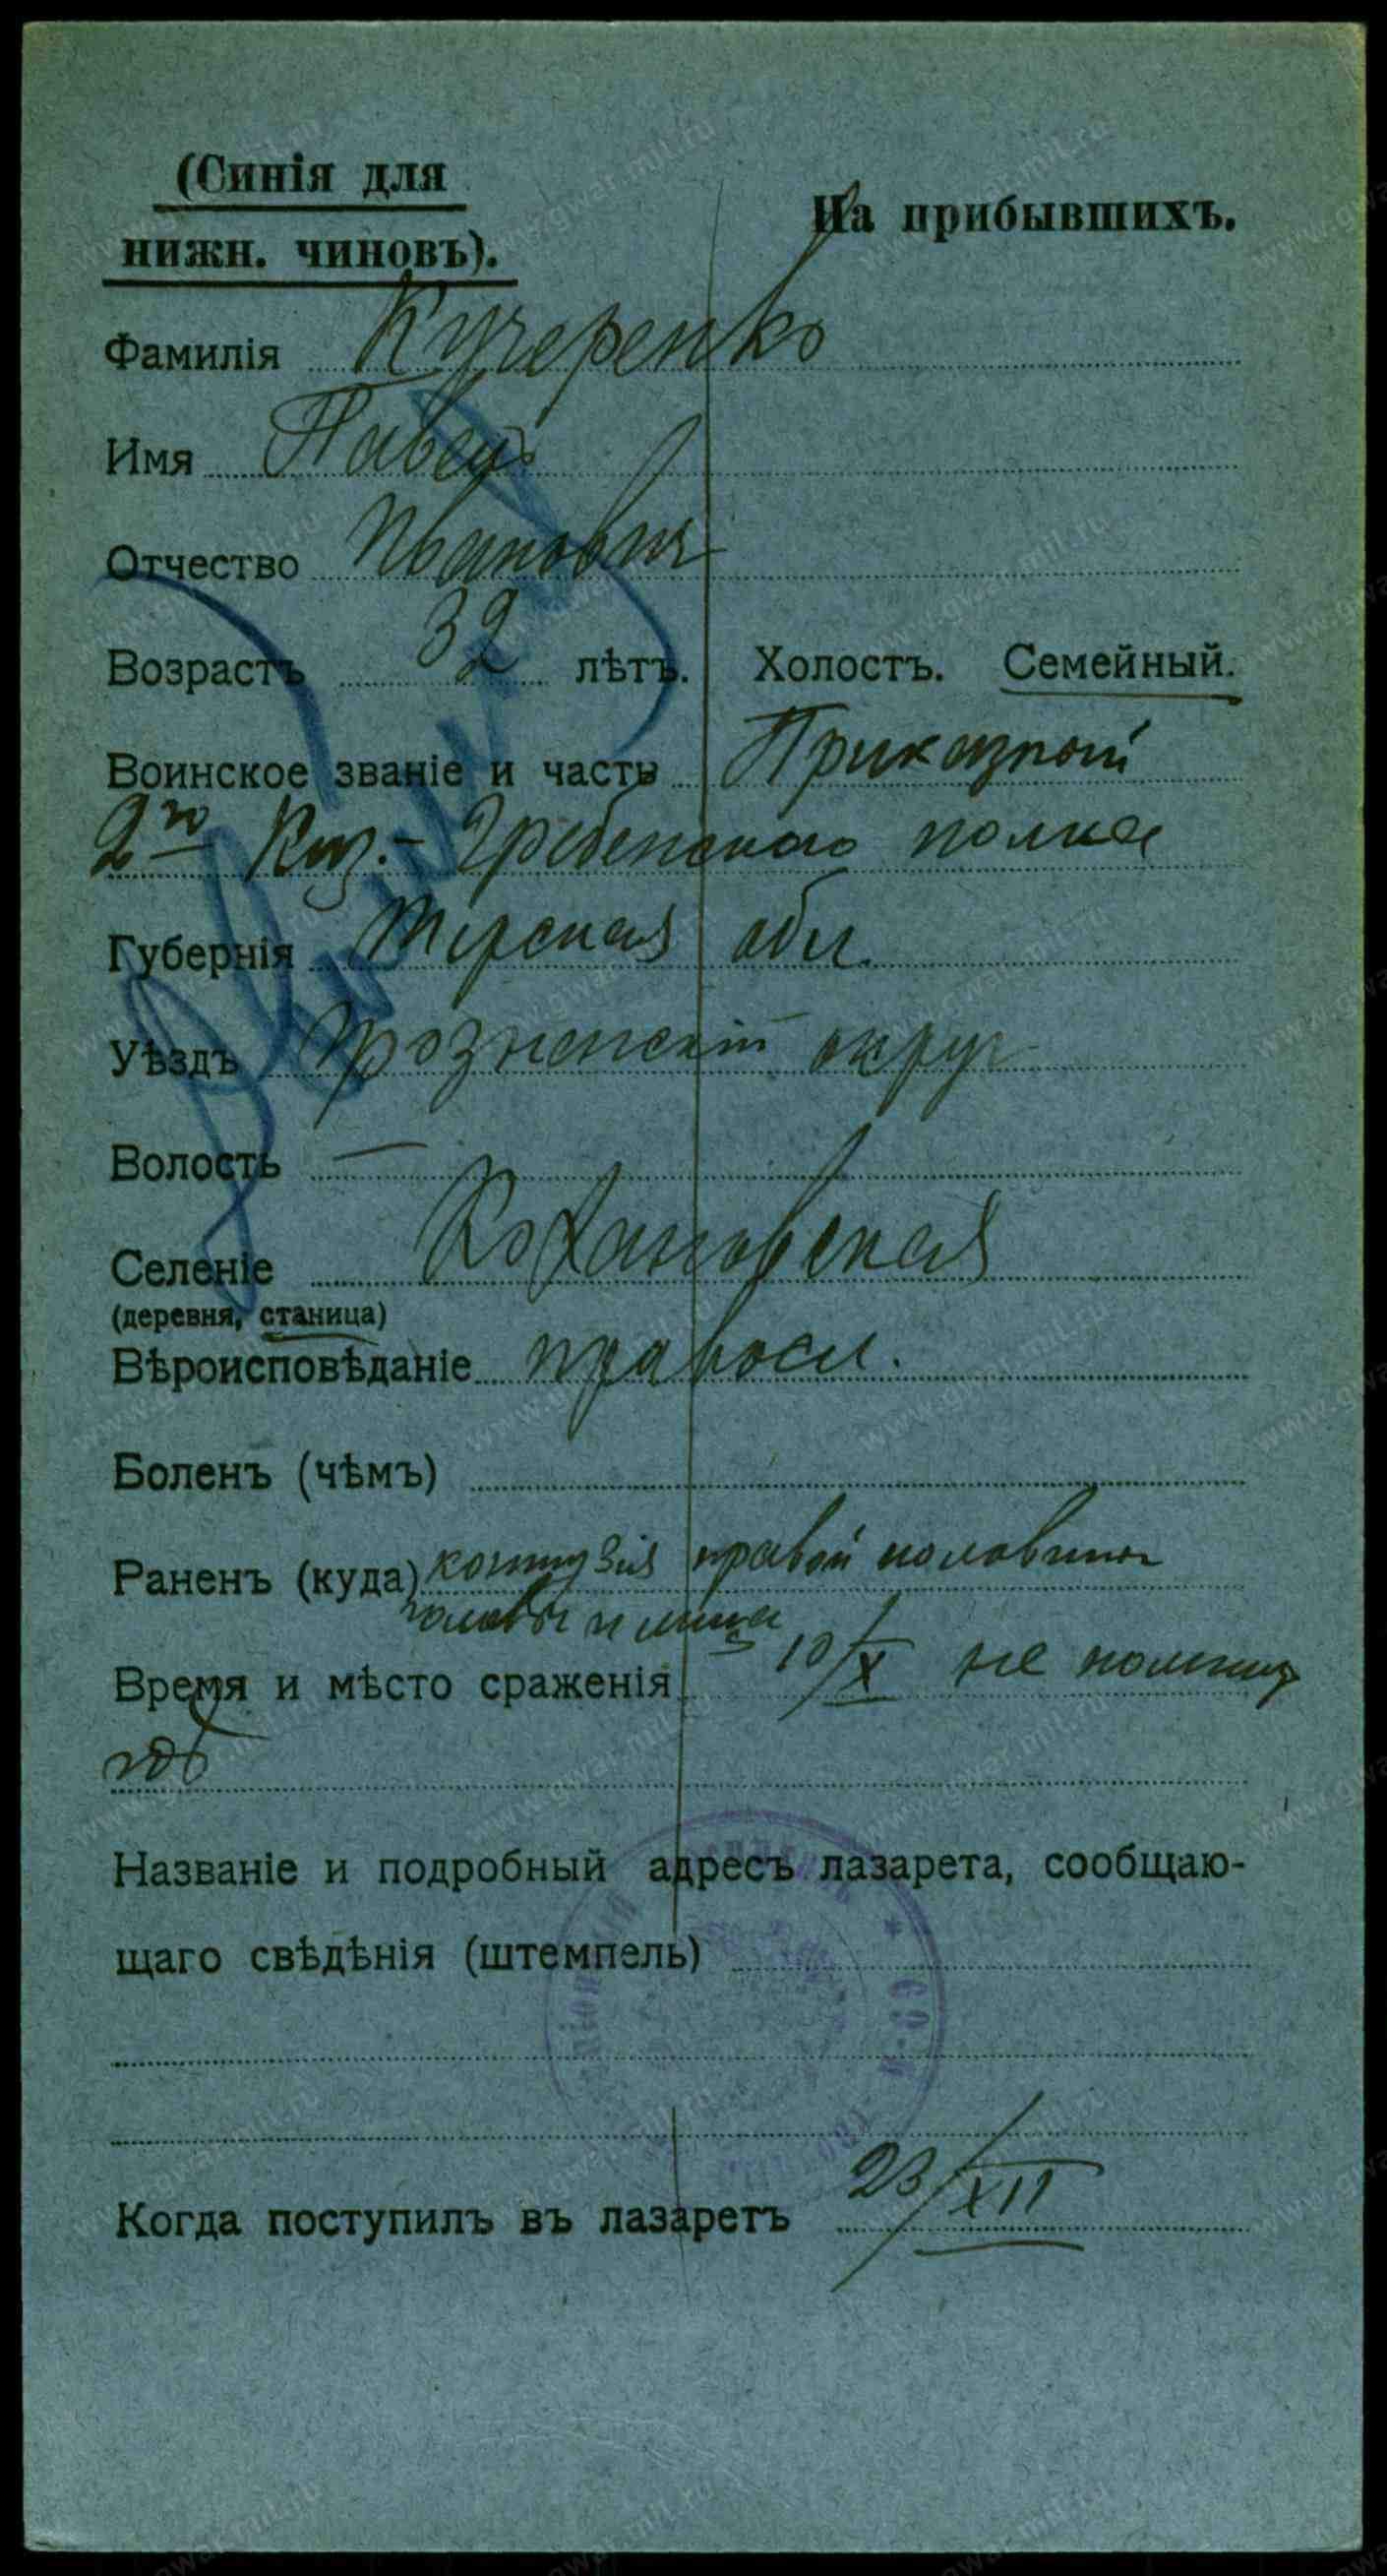 (Синія для
нижн. чиновъ).
На прибывшихъ.
Фамилія Кучеренко
Имя Павелъ
Отчество Иванович
Возрастъ 32 лѣтъ. Холостъ. Семейный.
Воинское званіе и часть Приказный
2го Киз.-Гребенского полка
Губернія Терская обл.
Уѣздъ Грозненскій округ
Волость —
Селеніе Кохановская
(деревня, станица)
Вѣроисповѣданіе правосл.
Боленъ (чѣмъ)
Раненъ (куда) контузія правой половины
головы и лица
Время и мѣсто сраженія 10/X не помнит
гдѣ
Названіе и подробный адресъ лазарета, сообщаю-
щаго свѣдѣнія (штемпель)
Когда поступилъ въ лазаретъ 23/XII